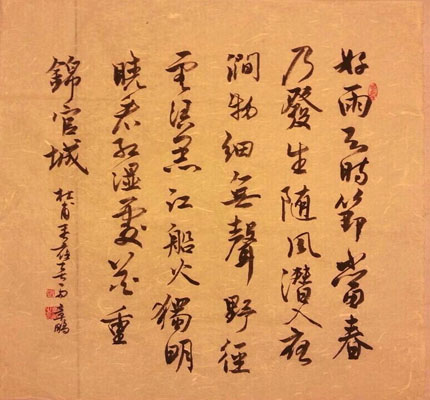 好雨知時節當春
乃發生随風潛入夜
潤物細無聲野徑
雲俱黑江船火獨明
曉看紅濕處花重
錦官城
杜甫春夜喜雨